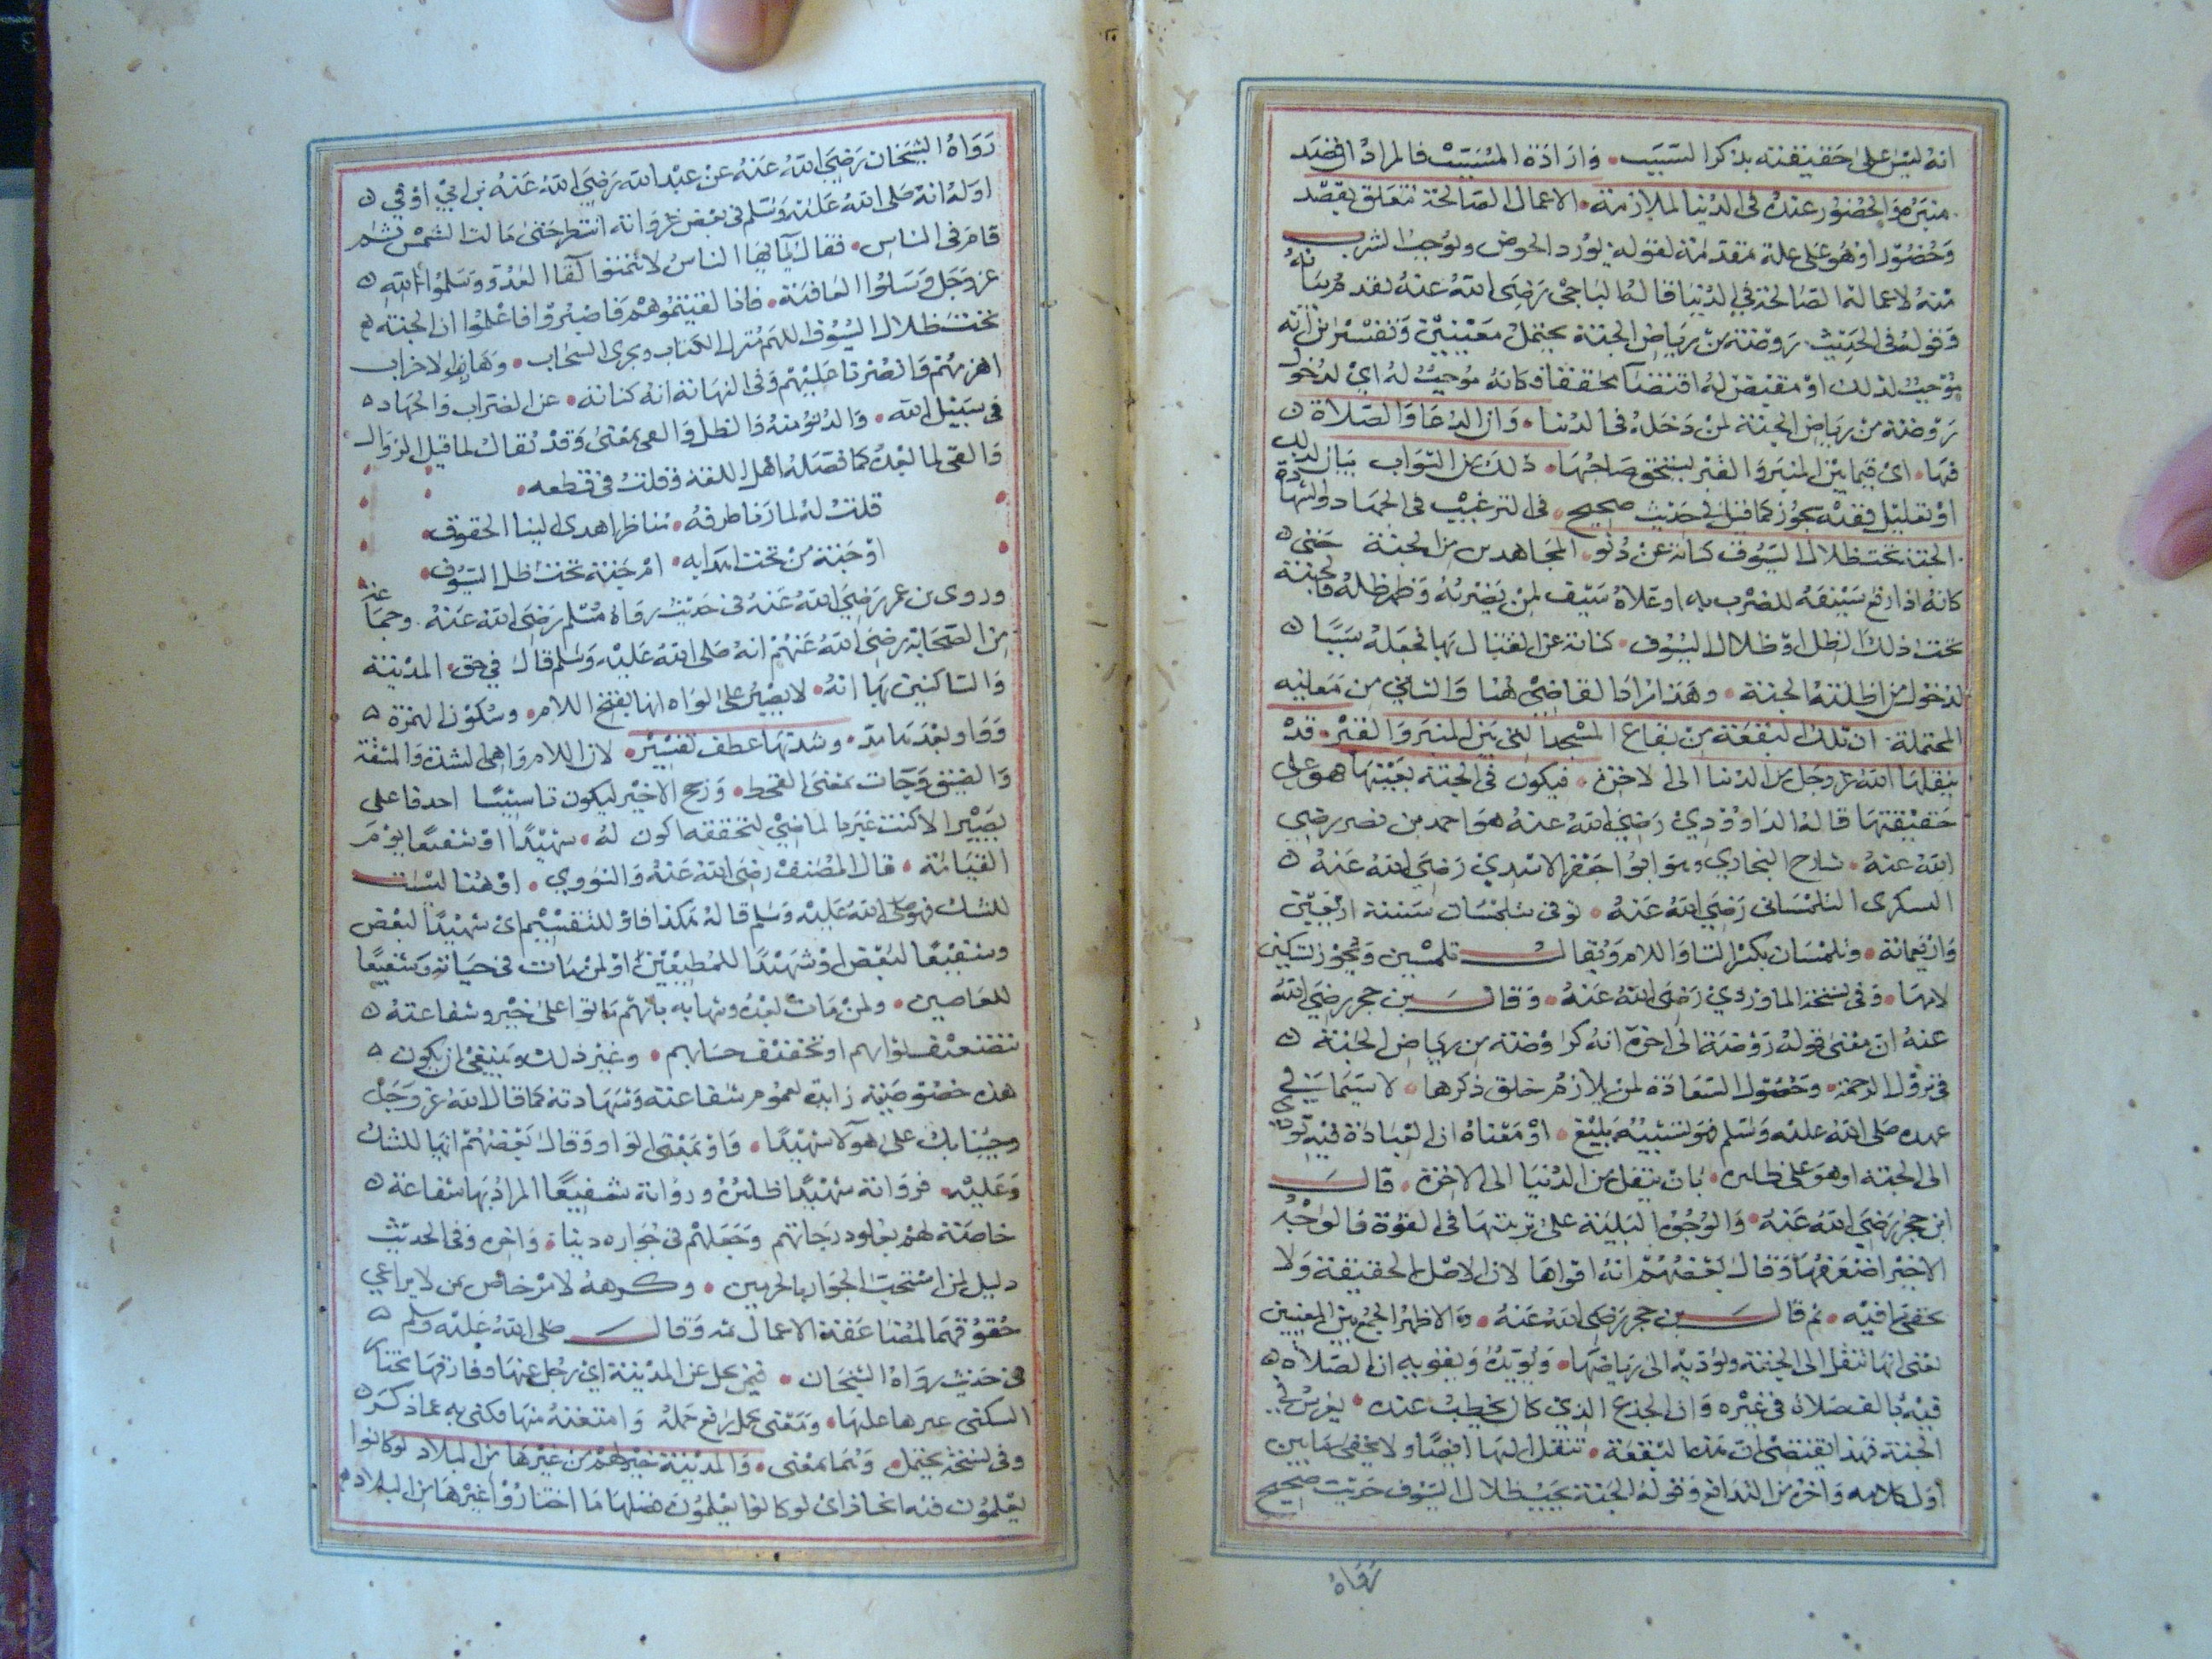 انه ليس على حقيقته بذكر السبب وارادة المسبب فالمراد ان قصد
منبره والحضور عنده في الدنيا لملازمة الاعمال الصالحة تتعلق بقصد
وحضور او هو على علة متقدمة لقوله يورد الحوض ويوجب الشرب
منه لاعماله الصالحة في الدنيا قاله الباجي رضي الله عنه لقد
وقوله في الحديث روضة من رياض الجنة يحتمل معنيين
موجب لذلك او مقيض له اقتضاء محققا فكانه موجب له اي لدخول
روضة من رياض الجنة لمن دخله في الدنيا وان الدعا والصلاة
فيها اي فيما بين المنبر والقبر ليستحق صاحبها ذلك من الثواب بيان لذلك
او تعليل ففيه يجوز كما قيل في حديث صحيح في الترغيب في الجهاد وانه
الجنة تحت ظلال السيوف كناية عن دنو المجاهدين من الجنة حتى
كانه اذا رفع سيفه للضرب به او علاه سيف لمن يضربه وظهر ظله فالجنة
تحت ذلك الظل او ظلال السيوف كناية عن القتال بها فجعله سببا
لدخول من اظلته الجنة وهذا مراد القاضي هنا والثاني من معانيه
المحتملة ان تلك البقعة من بقاع المسجد التي بين المنبر والقبر قد
ينقلها الله عز وجل من الدنيا الى الاخرة فيكون في الجنة بعينها هو على
حقيقتها قاله الداوودي رضي الله عنه هو احمد بن نصر رضي
الله عنه شارح البخاري وهو ابو جعفر الاسدي رضي الله عنه
السكري التلمساني رضي الله عنه توفي بتلمسان سنة اربعين
واربعماية وتلمسان بكسر التا واللام ويقال تلمسين ويجوز تسكين
لامها وفي نسخة الماوردي رضي الله عنه وقال بن حجر رضي الله
عنه ان معنى قوله روضة الى اخره انه كروضة من رياض الجنة
في نزول الرحمة وحصول السعادة لمن يلازم حلق ذكرها لا سيما في
عهده صلى الله عليه وسلم فهو تشبيه بليغ او معناه ان العبادة فيه تودي
الى الجنة او هو على ظاهره بان ينقل من الدنيا الى الاخرة قال
ابن حجر رضي الله عنه والوجوه الثلاثة على ترتيبها في القوة فالوجه
الاخير اضعفها وقال بعضهم انه اقواها لان الاصل الحقيقة ولا
يخفى ما فيه ثم قال بن حجر رضي الله عنه والاظهر الجمع بين المعنيين
يعني انها تنقل الى الجنة وتوديه الى رياضها ويويده ويقويه ان الصلاة
فيه بالف صلاة في غيره وان الجذع الذي كان يخطب عنده يغرس في
الجنة فهذا يقتضي ان هذه البقعة تنقل اليها ايضا ولا يخفى ما بين
اول كلامه واخره من التدافع وقوله الجنة تحت ظلال السيوف حديث صحيح
رواه
رواه الشيخان رضي الله عنه عن عبد الله رضي الله عنه بن ابي اوفى
اوله انه صلى الله عليه وسلم في بعض غزواته انتظر حتى مالت الشمس ثم
قام في الناس فقال يا ايها الناس لا تتمنوا لقا العدو وسلوا الله
عز وجل وسلوا العافية فاذا لقيتموهم فاصبروا واعلموا ان الجنة
تحت ظلال السيوف اللهم منزل الكتاب ومجري السحاب وهازم الاحزاب
اهزمهم وانصرنا عليهم وفي النهاية انه كناية عن الضراب والجهاد
في سبيل الله والدنو منه والظل والفي بمعنى وقد يقال لما قبل الزوال
والفي لما بعده كما فصله اهل اللغة وقلت في قطعه
قلت له لما رنا طرفه بناظر اهدى لينا الحقوق
او جنة من تحت اهدابه ام جنة تحت ظل السيوف
وروى بن عمر رضي الله عنه في حديث رواه مسلم رضي الله عنه وجماعة
من الصحابة رضي الله عنهم انه صلى الله عليه وسلم قال في حق المدينة
والساكنين بها انه لا يصبر على لاواها انها بفتح اللام وسكون الهمزة
وواو بعدها مد وشدتها عطف تفسير لان اللاوا هي الشدة والمشقة
والضيق وجات بمعنى القحط ورجح الاخير ليكون تاسيسا احد فاعل
يصبر الا كنت عبر بالماضي لتحققه اكون له شهيدا او شفيعا يوم
القيامة قال المصنف رضي الله عنه والنووي او هنا ليست
للشك فهو صلى الله عليه وسلم قاله هكذا فاو للتقسيم اي شهيدا لبعض
وشفيعا لبعض او شهيدا للمطيعين او لمن مات في حياته وشفيعا
للعاصين ولمن مات بعده وشهابه بانهم ماتوا على خير وشفاعته
تتضعيف ثوابهم او تخفيف حسابهم وغير ذلك وينبغي ان يكون
هذه خصوصية زايدة لعموم شفاعته وشهادته كما قال الله عز وجل
وجينا بك على هولا شهيدا واو بمعنى الواو وقال بعضهم انها للشك
وعليه فرواية شهيدا ظاهرة ورواية شفيعا المراد بها شفاعة
خاصة لهم بعلو درجاتهم وجعلهم في جواره دينا واخره وفي الحديث
دليل لمن استحب الجوار بالحرمين وكرهه لامر خاص بمن لا يراعي
حقوقهما لمضاعفة الاعمال ثمه وقال صلى الله عليه وسلم
في حديث رواه الشيخان فيمن تحمل عن المدينة اي رجل عنها وفارقها تختار
السكنى غيرها عليها ومعنى تحمل رفع حمله وامتعته منها فكنى به عما ذكر
وفي نسخة يحتمل وهما بمعنى والمدينة خير لهم من غيرها من البلاد لو كانوا
يعلمون فيه ايجاز اي لو كانوا يعلمون فضلها ما اختاروا غيرها من البلاد